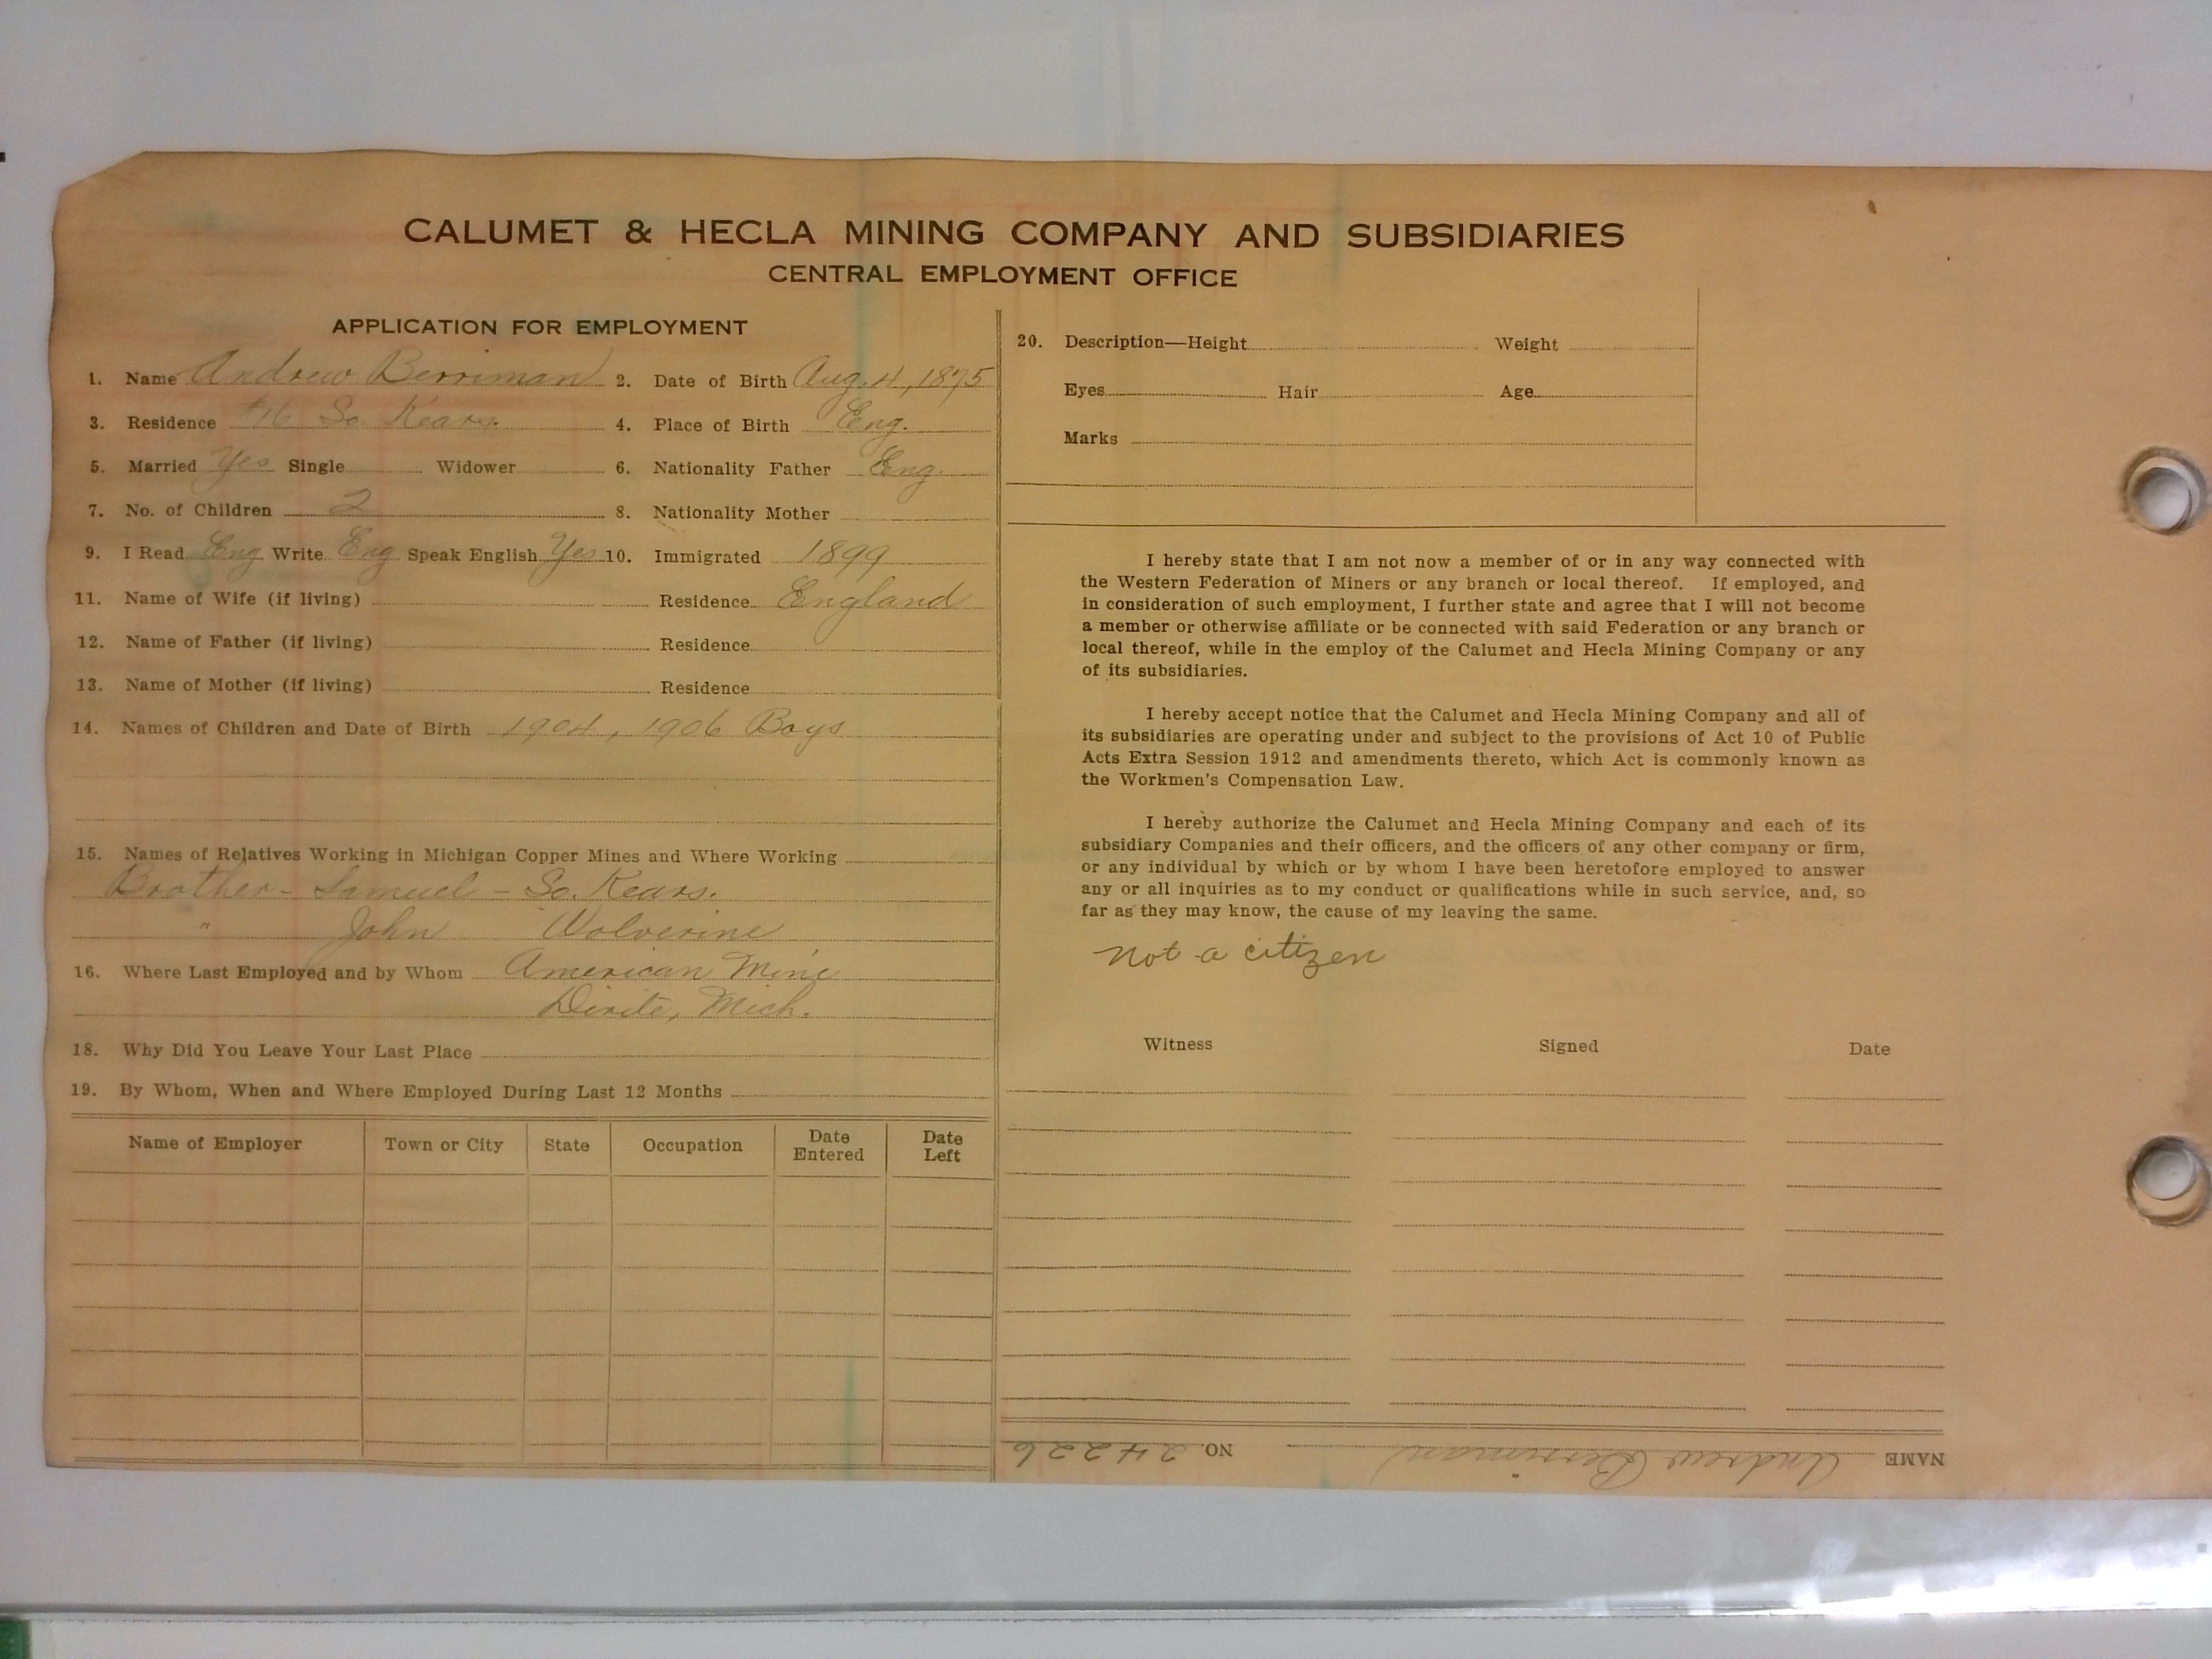 CALUMET & HECLA MINING COMPANY AND SUBSIDIARIES
CENTRAL EMPLOYMENT OFFICE
APPLICATION FOR EMPLOYMENT
1. Name Andrew Berriman 2. Date of Birth Aug. 4, 1875
3. Residence #16 So. Kears. 4. Place of Birth Eng.
5. Married Yes Single Widower 6. Nationality Father Eng.
7. No. of Children 2 8. Nationality Mother
9. I Read Eng Write Eng Speak English Yes 10. Immigrated 1899
11. Name of Wife (if living) Residence England
12. Name of Father (if living) Residence
13. Name of Mother (if living) Residence
14. Names of Children and Date of Birth 1904, 1906 Boys
15. Names of Relatives Working in Michigan Copper Mines and Where Working
Brother - Samuel - So. Kears.
" John Wolverine
16. Where Last Employed and by Whom American Mine
Dirite, Mich.
18. Why Did You Leave Your Last Place
19. By Whom, When and Where Employed During Last 12 Months
Name of Employer Town or City State Occupation Date Entered Date Left
20. Description—Height Weight
Eyes Hair Age
Marks
I hereby state that I am not now a member of or in any way connected with
the Western Federation of Miners or any branch or local thereof. If employed, and
in consideration of such employment, I further state and agree that I will not become
a member or otherwise affiliate or be connected with said Federation or any branch or
local thereof, while in the employ of the Calumet and Hecla Mining Company or any
of its subsidiaries.
I hereby accept notice that the Calumet and Hecla Mining Company and all of
its subsidiaries are operating under and subject to the provisions of Act 10 of Public
Acts Extra Session 1912 and amendments thereto, which Act is commonly known as
the Workmen's Compensation Law.
I hereby authorize the Calumet and Hecla Mining Company and each of its
subsidiary Companies and their officers, and the officers of any other company or firm,
or any individual by which or by whom I have been heretofore employed to answer
any or all inquiries as to my conduct or qualifications while in such service, and, so
far as they may know, the cause of my leaving the same.
not a citizen
Witness Signed Date
NAME Andrew Berriman NO. 24226